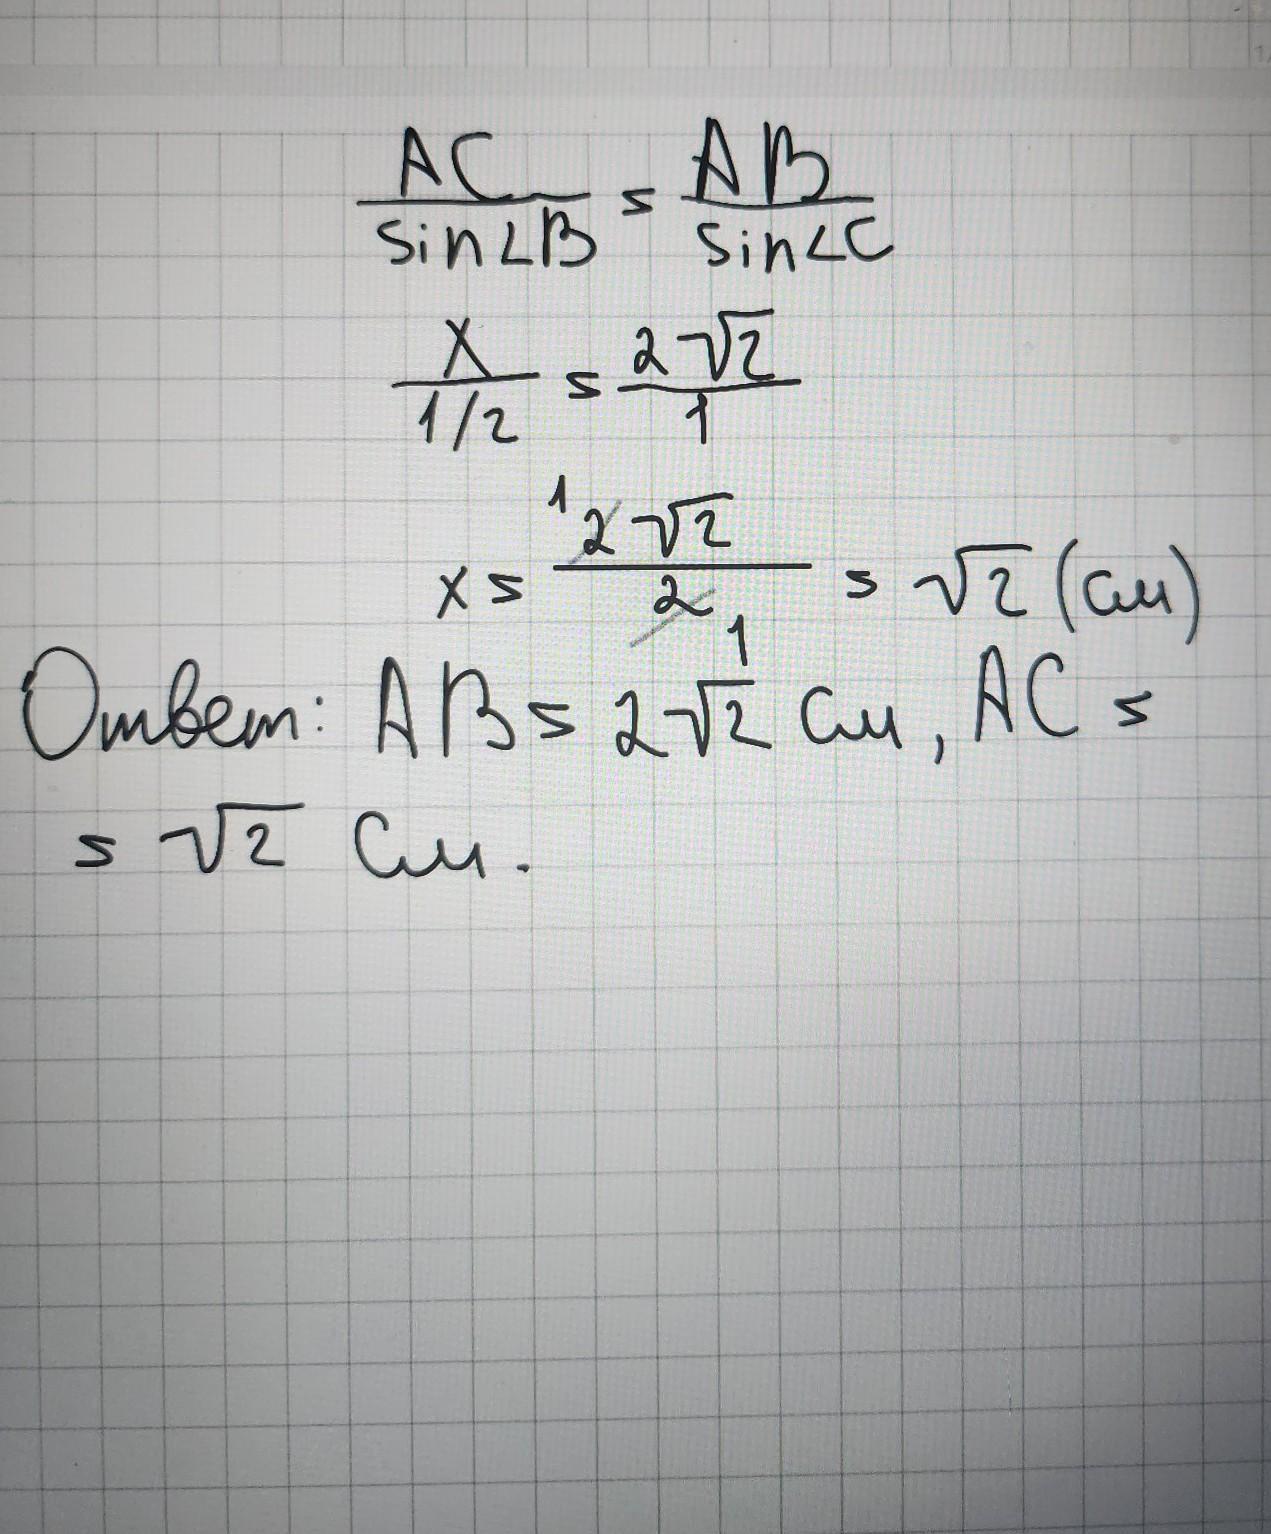 AC/sin∠B = AB/sin∠C
x/1/2 = 2√2/1
x = ¹2√2/2₁ = √2 (см)
Ответ: AB = 2√2 см, AC =
= √2 см.